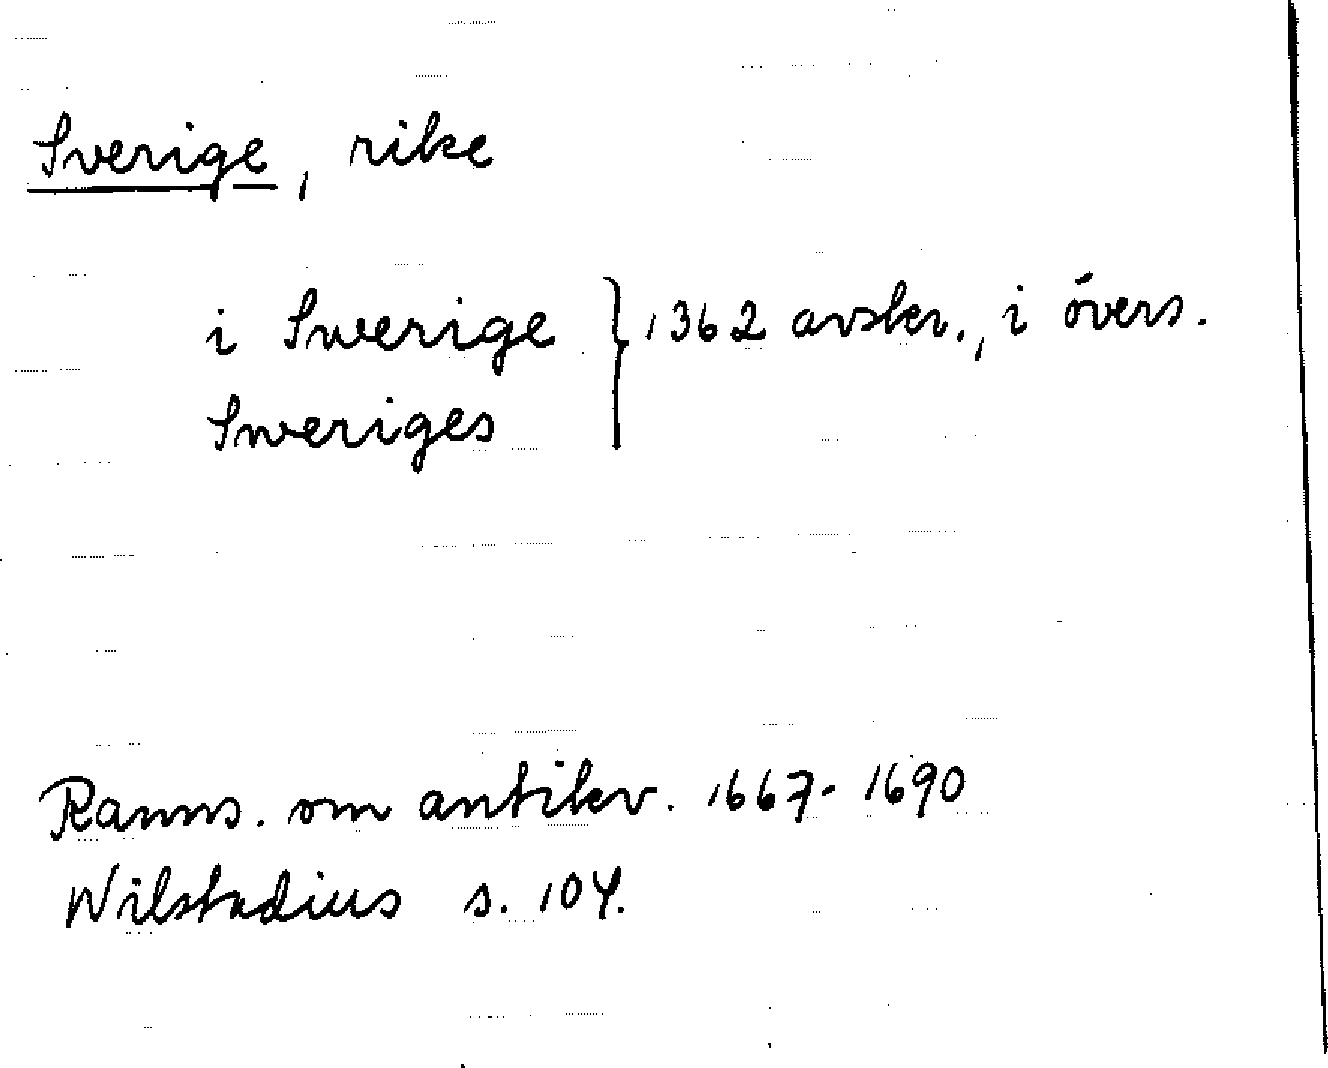 Sverige, rike
i Swerige } 1362 avskr., i övers.
Sweriges
Ranns. om antikv. 1667-1690
Wilstadius s. 104.